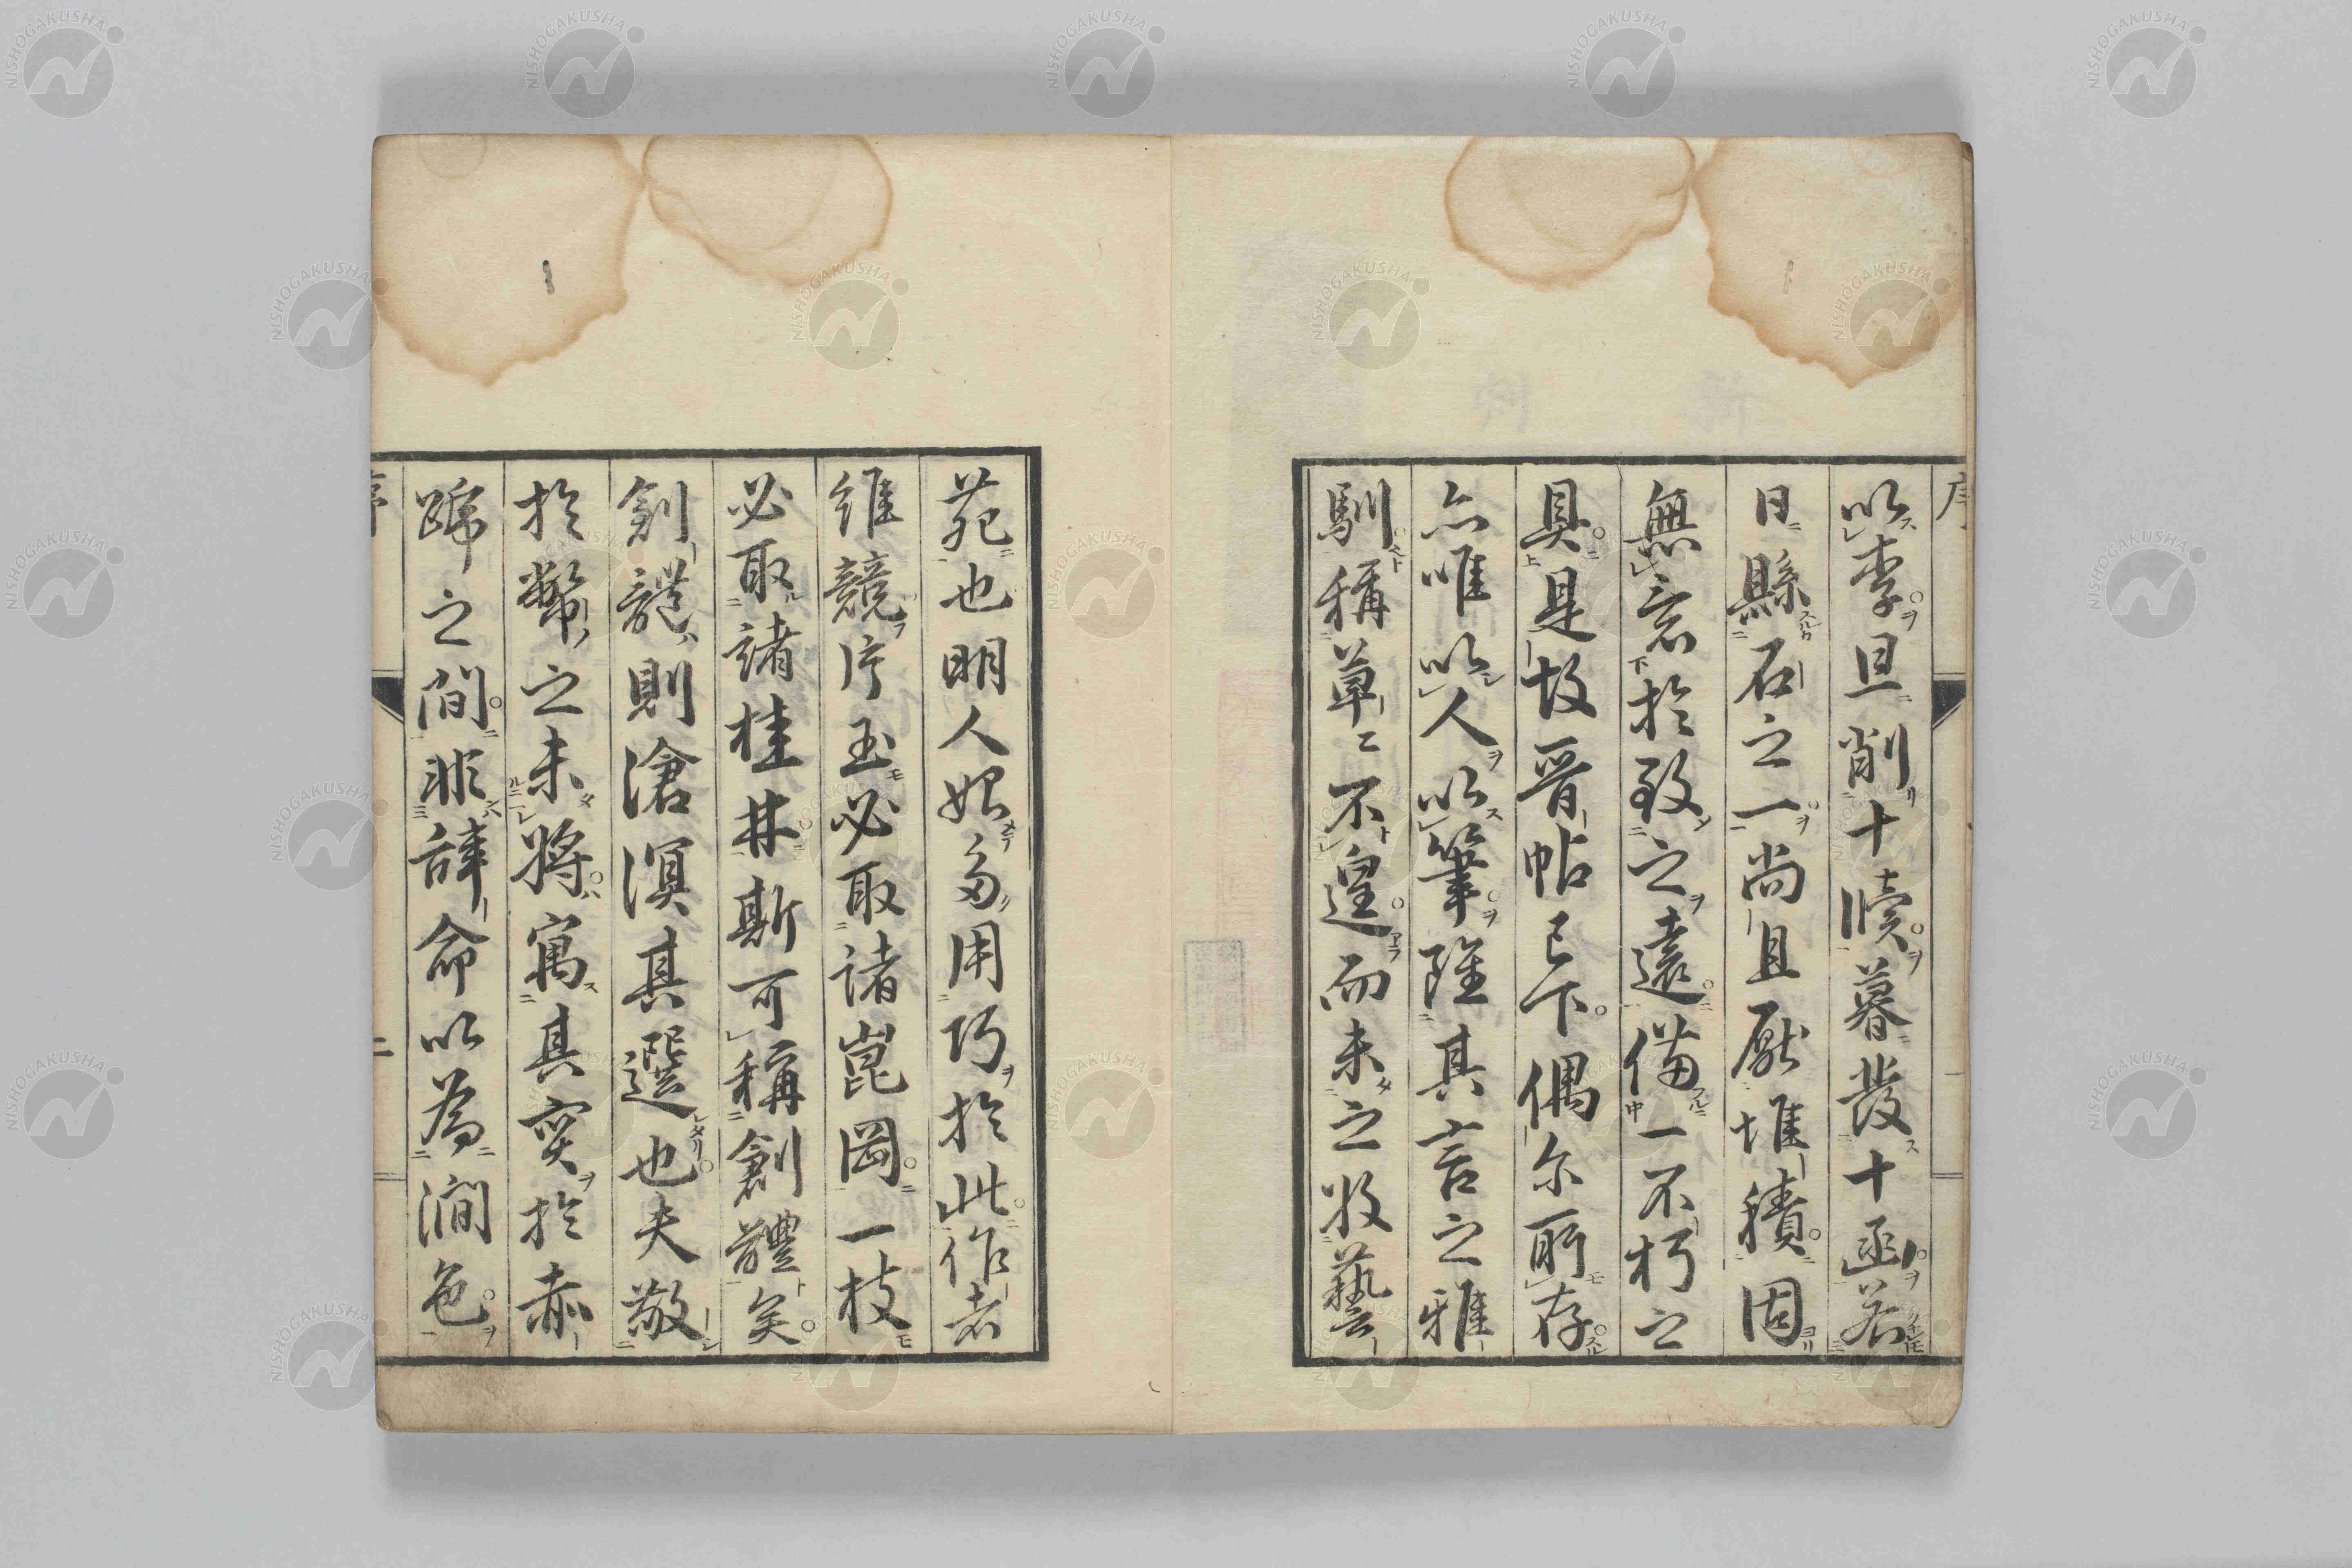 序
以李旦削十牘暮發十函若
日縣石之一尚且厭堆積因
無意於致之遠備一不朽之
具是故晉帖已下偶尔所存
亦唯以人以筆隆其言之雅
馴稱草〻不遑而未之收藝
苑也明人始多用巧於此作者
維競片玉必取諸崑岡一枝
必取諸桂林斯可稱創體矣
創讓則滄溟其選也夫敬
於幣之未將寓其實於赤
蹏之間非辭命以為潤色
序
二
NISHOGAKUSHA